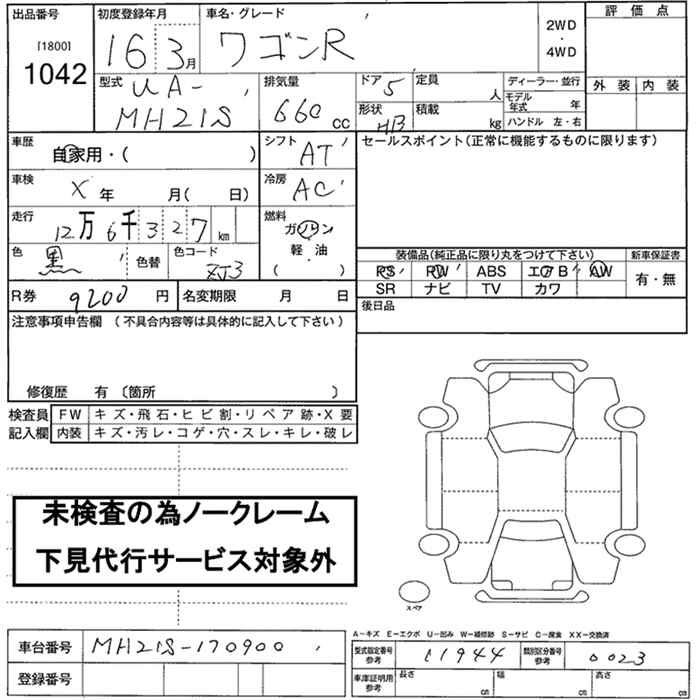 出品番号 初度登録年月 車名・グレード 評価点
[1800] 16 3月 ワゴンR 2WD・4WD
1042 外装 内装
型式 UA- 排気量 ドア 5 定員 人 ディーラー・並行
MH21S 660 cc 形状 HB 積載 kg モデル年式 年
ハンドル 左・右
車歴 自家用・( ) シフト AT セールスポイント(正常に機能するものに限ります)
車検 X 年 月( 日) 冷房 AC
走行 12万6千327km 燃料 ガソリン
色 黒 色替 色コード ZJ3 軽・油
( )
装備品(純正品に限り丸をつけて下さい) 新車保証書
PS PW ABS エアB AW 有・無
SR ナビ TV カワ
R券 9200 円 名変期限 月 日 後日品
注意事項申告欄 (不具合内容等は具体的に記入して下さい)
修復歴 有 〔箇所 〕
検査員 FW キズ・飛石・ヒビ割・リペア跡・X要
記入欄 内装 キズ・汚レ・コゲ・穴・スレ・キレ・破レ
未検査の為ノークレーム
下見代行サービス対象外
スペア
A-キズ E-エクボ U-凹み W-補修跡 S-サビ C-腐食 XX-交換済
車台番号 MH21S-170900 型式指定番号 参考 11944 類別区分番号 参考 0023
登録番号 車庫証明用 参考 長さ cm 幅 cm 高さ cm